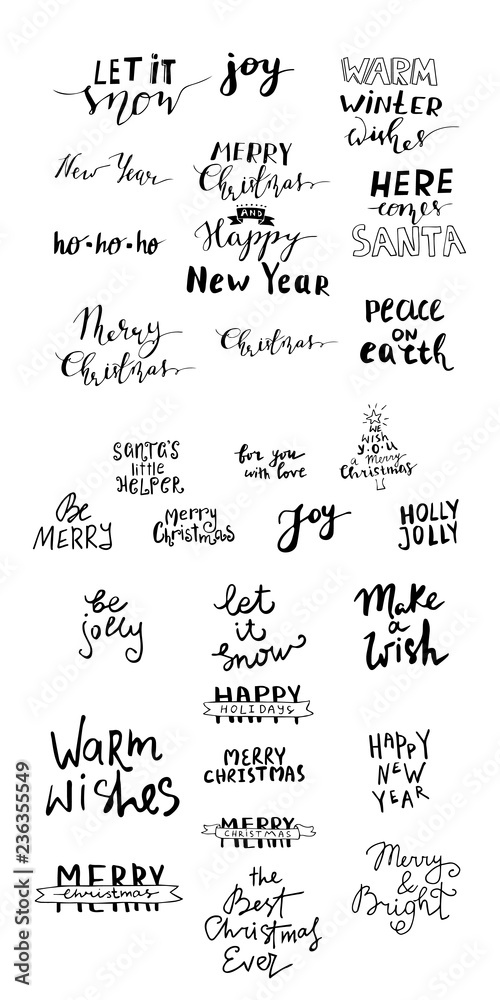 LET iT
snow
joy
WARM
WiNTER
wishes
New Year
MERRY
Christmas
AND
Happy
New Year
HERE
comes
SANTA
ho-ho-ho
Merry
Christmas
Christmas
PEACE
ON
earth
SANTA'S
little
HELPER
for you
with love
WE
WISH
Y.O.U
a Merry
Christmas
Be
MERRY
Merry
Christmas
Joy
HOLLY
JOLLY
be
jolly
let
it
snow
Make
a
Wish
HAPPY
HOLIDAYS
Warm
wishes
MERRY
CHRISTMAS
HAPPY
NEW
YEAR
MERRY
CHRISTMAS
MERRY
Christmas
the
Best
Christmas
Ever
Merry
&
Bright
Adobe Stock | #236355549